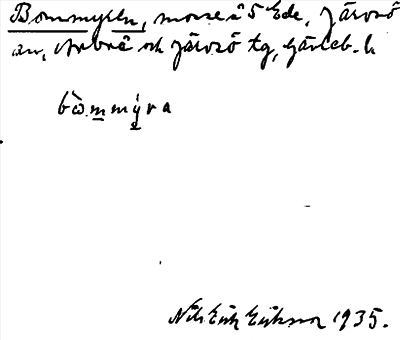 Bommyren, mosse i S Ede, Järvsö
sn, Arbrå och Järvsö tg, Gävleb. l.
bòmmýra
Nils Erik Eriksson 1935.